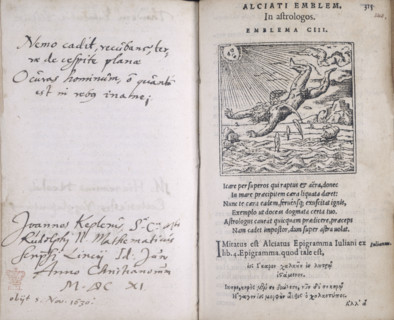 Nemo cadit, recubans ter,
ræ de cespite planæ
O curas hominum, ô quantū
est in rebus inane;
Ioannes Keplerus S. C. Mtis
Rudolphi II. Mathematicus
Scripsi Lincii Id. Jan
Anno Christianorum
M. DC XI.
obijt 5. Nov. 1630.
ALCIATI EMBLEM.
315
In astrologos.
EMBLEMA CIII.
Icare per superos qui raptus & aëra, donec
In mare præcipitem cæra liquata daret:
Nunc te cæra eadem, feruensq; resuscitat ignis,
Exemplo ut doceas dogmata certa tuo.
Astrologus caueat quicquam prædicere, præceps
Nam cadet impostor, dum super astra volat.
IMitatus est Alciatus Epigramma Iuliani ex
lib. 4. Epigramm. quod tale est,